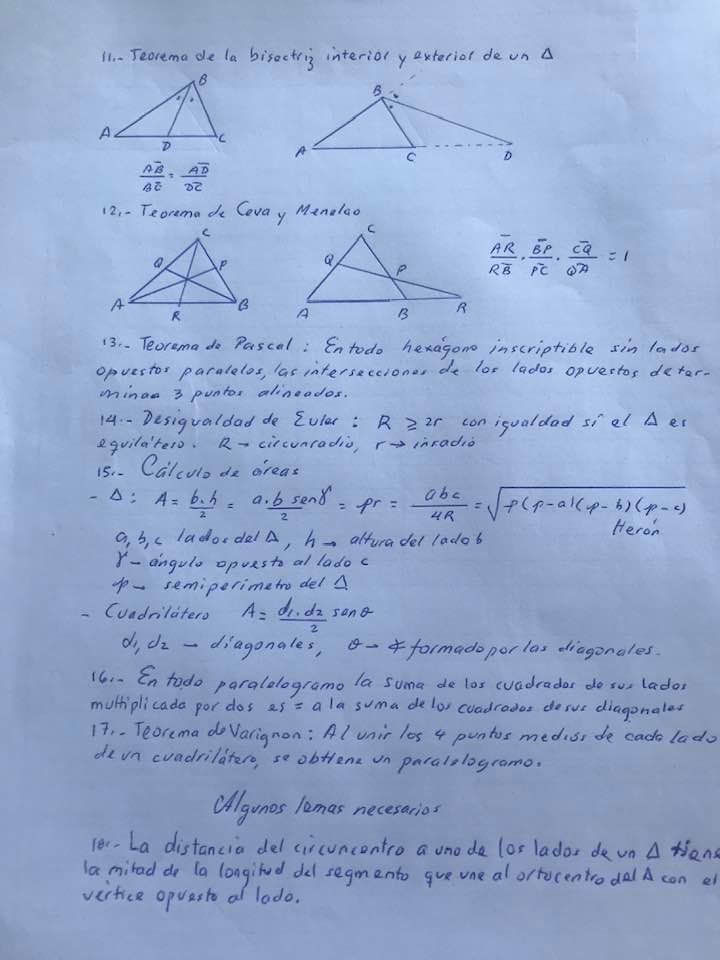 11.- Teorema de la bisectriz interior y exterior de un Δ
B
A
D
C
B
A
C
D
AB/BC = AD/DC
12.- Teorema de Ceva y Menelao
C
Q
P
A
R
B
C
Q
P
A
B
R
AR/RB · BP/PC · CQ/QA = 1
13.- Teorema de Pascal : En todo hexágono inscriptible sin lados
opuestos paralelos, las intersecciones de los lados opuestos deter-
minan 3 puntos alineados.
14.- Desigualdad de Euler : R ≥ 2r con igualdad si el Δ es
equilátero. R → circunradio, r → inradio
15.- Cálculo de áreas
- Δ : A = b.h/2 = a.b senγ/2 = pr = abc/4R = √p(p-a)(p-b)(p-c)
Herón
a, b, c lados del Δ, h → altura del lado b
γ - ángulo opuesto al lado c
p → semiperímetro del Δ
- Cuadrilátero A = d1.d2/2 senθ
d1, d2 → diagonales, θ → ∢ formado por las diagonales.
16.- En todo paralelogramo la suma de los cuadrados de sus lados
multiplicada por dos es = a la suma de los cuadrados de sus diagonales
17.- Teorema de Varignon : Al unir los 4 puntos medios de cada lado
de un cuadrilátero, se obtiene un paralelogramo.
Algunos lemas necesarios
18.- La distancia del circuncentro a uno de los lados de un Δ tiene
la mitad de la longitud del segmento que une al ortocentro del Δ con el
vértice opuesto al lado.